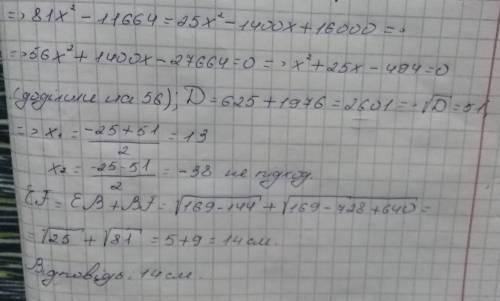 => 81x² - 11664 = 25x² - 1400x + 16000 =>
=> 56x² + 1400x - 27664 = 0 => x² + 25x - 494 = 0
(поділили на 56); D = 625 + 1976 = 2601 => √D = 51
=> x₁ = (-25+51)/2 = 13
x₂ = (-25-51)/2 = -38 не підход.
EF = EB + BF = √(169-144) + √(169-728+640) =
= √25 + √81 = 5 + 9 = 14 см.
Відповідь: 14 см.